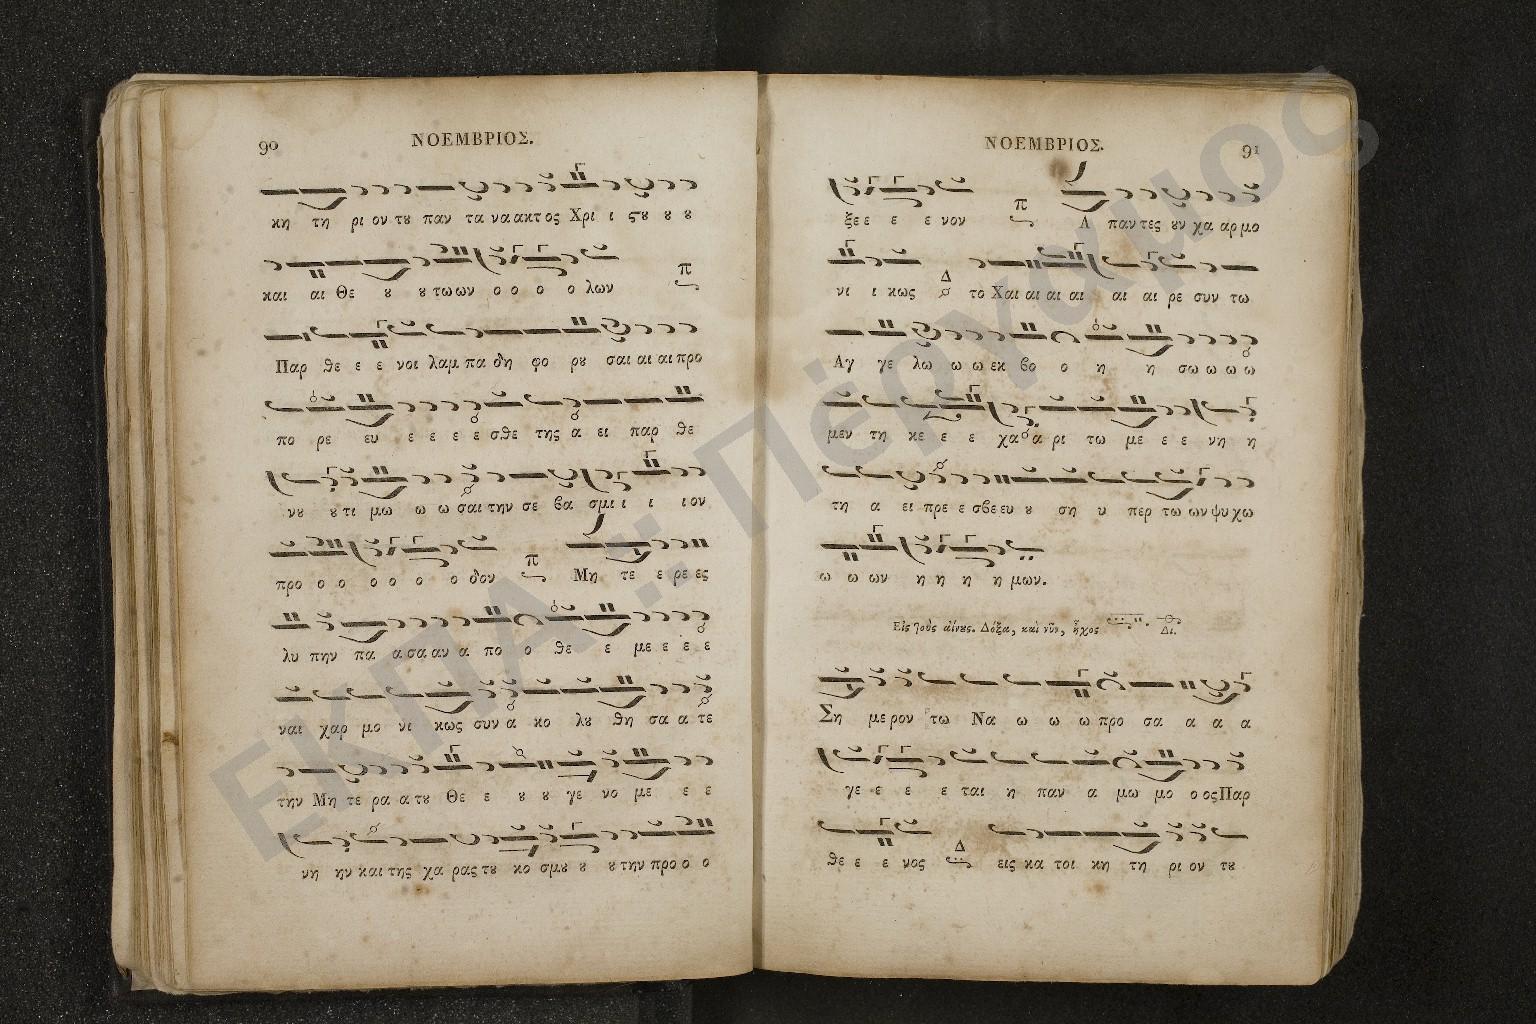 90
ΝΟΕΜΒΡΙΟΣ.
κη τη ρι ον τȣ παν τα να ακτος Χρι ι ϛȣ ȣ ȣ
και αι Θε ȣ ȣ τω ων ο ο ο ο λων
π
Παρ θε ε ε νοι λαμ πα δη φο ρȣ σαι αι αι προ
πο ρε ευ ε ε ε ε σθε της α ει παρ θε
νȣ ȣ τι μω ω ω σαι την σε βα σμι ι ι ι ον
προ ο ο ο ο ο ο δον
π
Μη τε ε ρε ες
λυ πην πα α σα αν α πο ο θε ε με ε ε ε
ναι χαρ μο νι κως συν α κο λȣ θη σα α τε
την Μη τε ρα α τȣ Θε ε ȣ ȣ γε νο με ε ε
νη ην και της χα ρας τȣ κο σμȣ ȣ ȣ την προ ο ο
ΝΟΕΜΒΡΙΟΣ.
91
ξε ε ε ε ε νον
π
Α παν τες ȣν χα αρ μο
νι ι κως
Δ
το Χαι αι αι αι αι αι ρε συν τω
Αγ γε λω ω ω εκ βο ο η η σω ω ω ω
μεν τη κε ε ε χα α ρι τω με ε ε νη η
τη α ει πρε ε σβε ευ ȣ ση υ περ τω ων ψυ χω
ω ω ων η η η η μων.
Εἰς τοὺς αἴνȣς. Δόξα, καὶ νῦν, ἦχος
Δι.
Ση με ρον τω Να ω ω ω προ σα α α α
γε ε ε ε ται η παν α μω μο ο ος Παρ
θε ε ε νος
Δ
εις κα τοι κη τη ρι ον τȣ
ΕΚΠΑ :: Πέργαμος